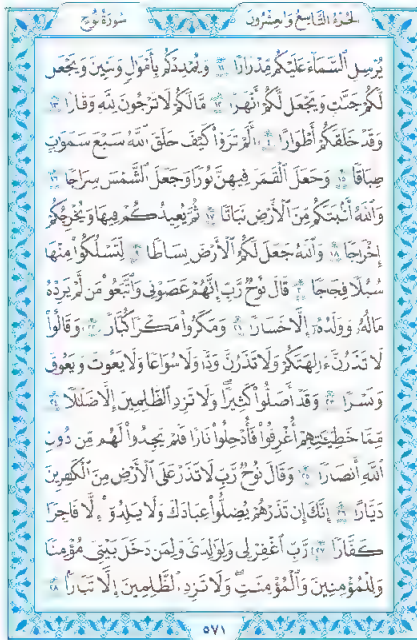 الجزء التاسع والعشرون
سورة نوح
يُرْسِلِ ٱلسَّمَآءَ عَلَيْكُم مِّدْرَارًا ١١ وَيُمْدِدْكُم بِأَمْوَٰلٍ وَبَنِينَ وَيَجْعَل
لَّكُمْ جَنَّٰتٍ وَيَجْعَل لَّكُمْ أَنْهَٰرًا ١٢ مَّا لَكُمْ لَا تَرْجُونَ لِلَّهِ وَقَارًا ١٣
وَقَدْ خَلَقَكُمْ أَطْوَارًا ١٤ أَلَمْ تَرَوْا۟ كَيْفَ خَلَقَ ٱللَّهُ سَبْعَ سَمَٰوَٰتٍ
طِبَاقًا ١٥ وَجَعَلَ ٱلْقَمَرَ فِيهِنَّ نُورًا وَجَعَلَ ٱلشَّمْسَ سِرَاجًا ١٦
وَٱللَّهُ أَنۢبَتَكُم مِّنَ ٱلْأَرْضِ نَبَاتًا ١٧ ثُمَّ يُعِيدُكُمْ فِيهَا وَيُخْرِجُكُمْ
إِخْرَاجًا ١٨ وَٱللَّهُ جَعَلَ لَكُمُ ٱلْأَرْضَ بِسَاطًا ١٩ لِّتَسْلُكُوا۟ مِنْهَا
سُبُلًا فِجَاجًا ٢٠ قَالَ نُوحٌ رَّبِّ إِنَّهُمْ عَصَوْنِى وَٱتَّبَعُوا۟ مَن لَّمْ يَزِدْهُ
مَالُهُۥ وَوَلَدُهُۥٓ إِلَّا خَسَارًا ٢١ وَمَكَرُوا۟ مَكْرًا كُبَّارًا ٢٢ وَقَالُوا۟
لَا تَذَرُنَّ ءَالِهَتَكُمْ وَلَا تَذَرُنَّ وَدًّا وَلَا سُوَاعًا وَلَا يَغُوثَ وَيَعُوقَ
وَنَسْرًا ٢٣ وَقَدْ أَضَلُّوا۟ كَثِيرًا ۖ وَلَا تَزِدِ ٱلظَّٰلِمِينَ إِلَّا ضَلَٰلًا ٢٤
مِّمَّا خَطِيٓـَٰٔتِهِمْ أُغْرِقُوا۟ فَأُدْخِلُوا۟ نَارًا فَلَمْ يَجِدُوا۟ لَهُم مِّن دُونِ
ٱللَّهِ أَنصَارًا ٢٥ وَقَالَ نُوحٌ رَّبِّ لَا تَذَرْ عَلَى ٱلْأَرْضِ مِنَ ٱلْكَٰفِرِينَ
دَيَّارًا ٢٦ إِنَّكَ إِن تَذَرْهُمْ يُضِلُّوا۟ عِبَادَكَ وَلَا يَلِدُوٓا۟ إِلَّا فَاجِرًا
كَفَّارًا ٢٧ رَّبِّ ٱغْفِرْ لِى وَلِوَٰلِدَىَّ وَلِمَن دَخَلَ بَيْتِىَ مُؤْمِنًا
وَلِلْمُؤْمِنِينَ وَٱلْمُؤْمِنَٰتِ وَلَا تَزِدِ ٱلظَّٰلِمِينَ إِلَّا تَبَارًۢا ٢٨
٥٧١